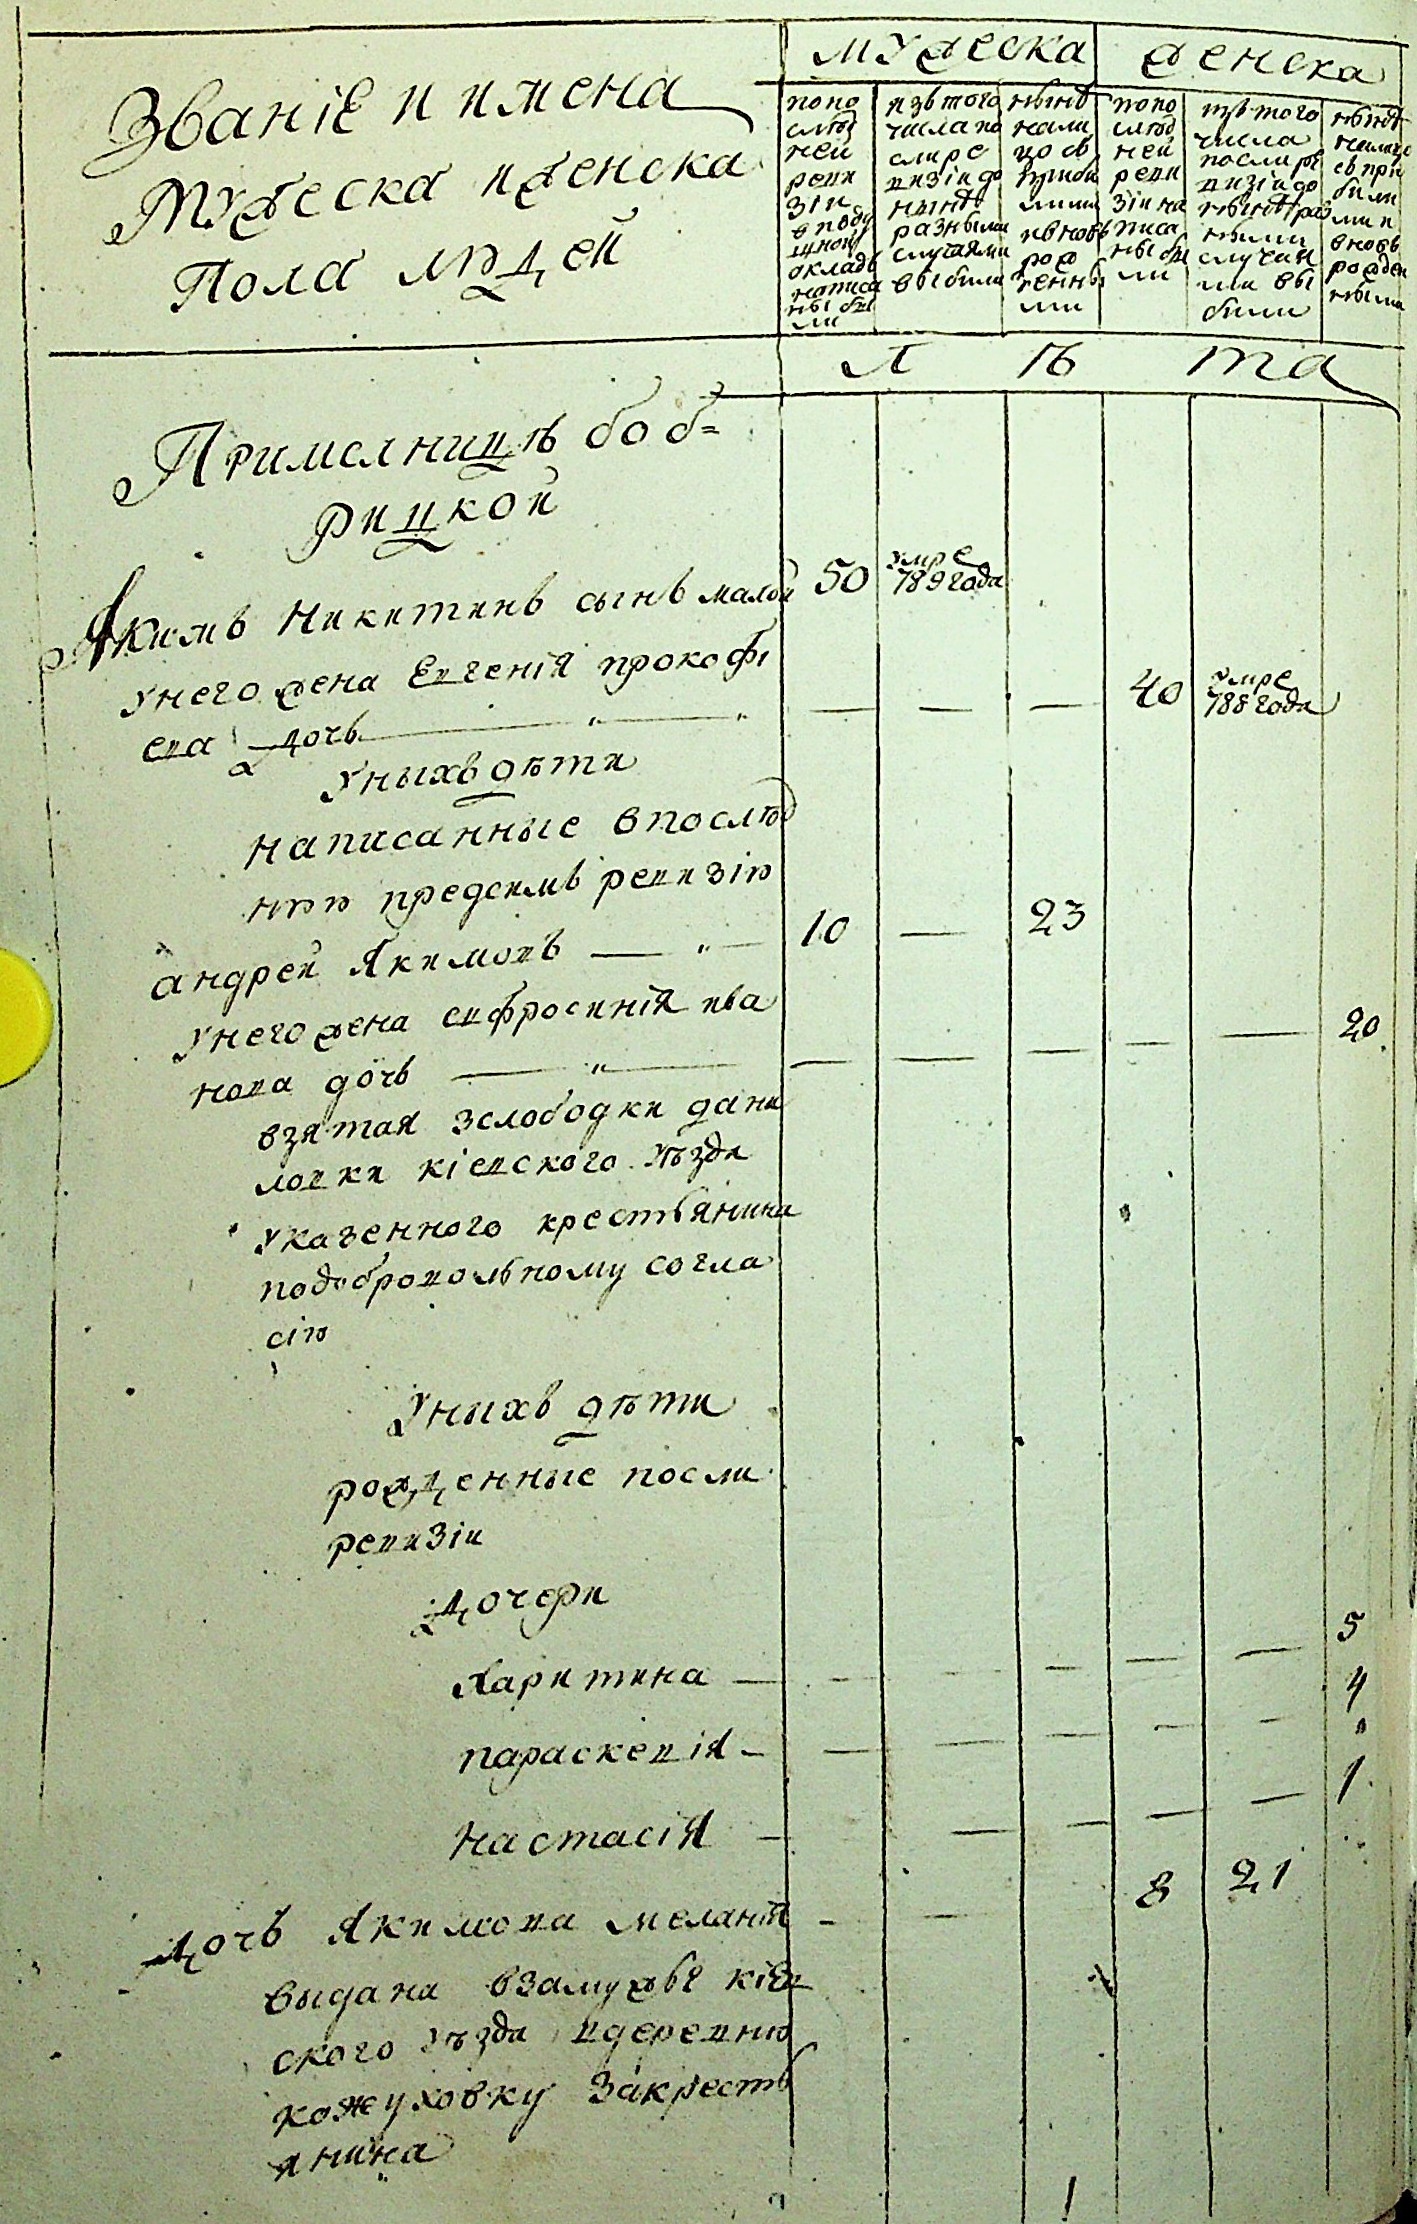 Званіе и имена
Мужеска и женска
Пола людей
мужеска
женска
попо
слѣд
ней
реви
зіи
вподу
шной
окладъ
написа
ны бы
ли
изъ того
числа по
сле ре
визіи до
нынѣ
разными
случаями
выбыли
нынѣ
нали
цо съ
прибы
лими
ивновь
рож
ченны
ми
попо
слѣд
ней
реви
зіи на
писа
ны бы
ли
изъ того
числа
посли ре
визіи до
нынѣ раз
ными
случая
ми вы
были
нынѣ
налицо
съ при
были
ми и
вновь
рожден
ными
л ѣ та
Примелницѣ боб=
рицкой
Якимъ Никитинъ сынъ малой 50 умре
789 года
унего жена Евгенія прокофі
ева дочь — " — " — — — 40 умре
788 года
Уныхъ дѣти
написанные впослѣд
нюю предсимъ ревизію
андрей Якимовъ — " — 10 — 23
Унего жена евфросинія ива
нова дочь — " — — — — — — 20
взятая зслободки дани
ловки кіевского уѣзда
указенного крестьянина
подобровольному согла
сію
Уныхъ дѣти
рожденные посли
ревизіи
Дочери
Харитина — — — — — — 5
параскевія — — — — — — 4
Настасія — — — — — 1
Дочь Якимова мелані — — 8 21
выдана взамужье кіев
ского уѣзда вдеревню
кожуховку закресть
янина
1